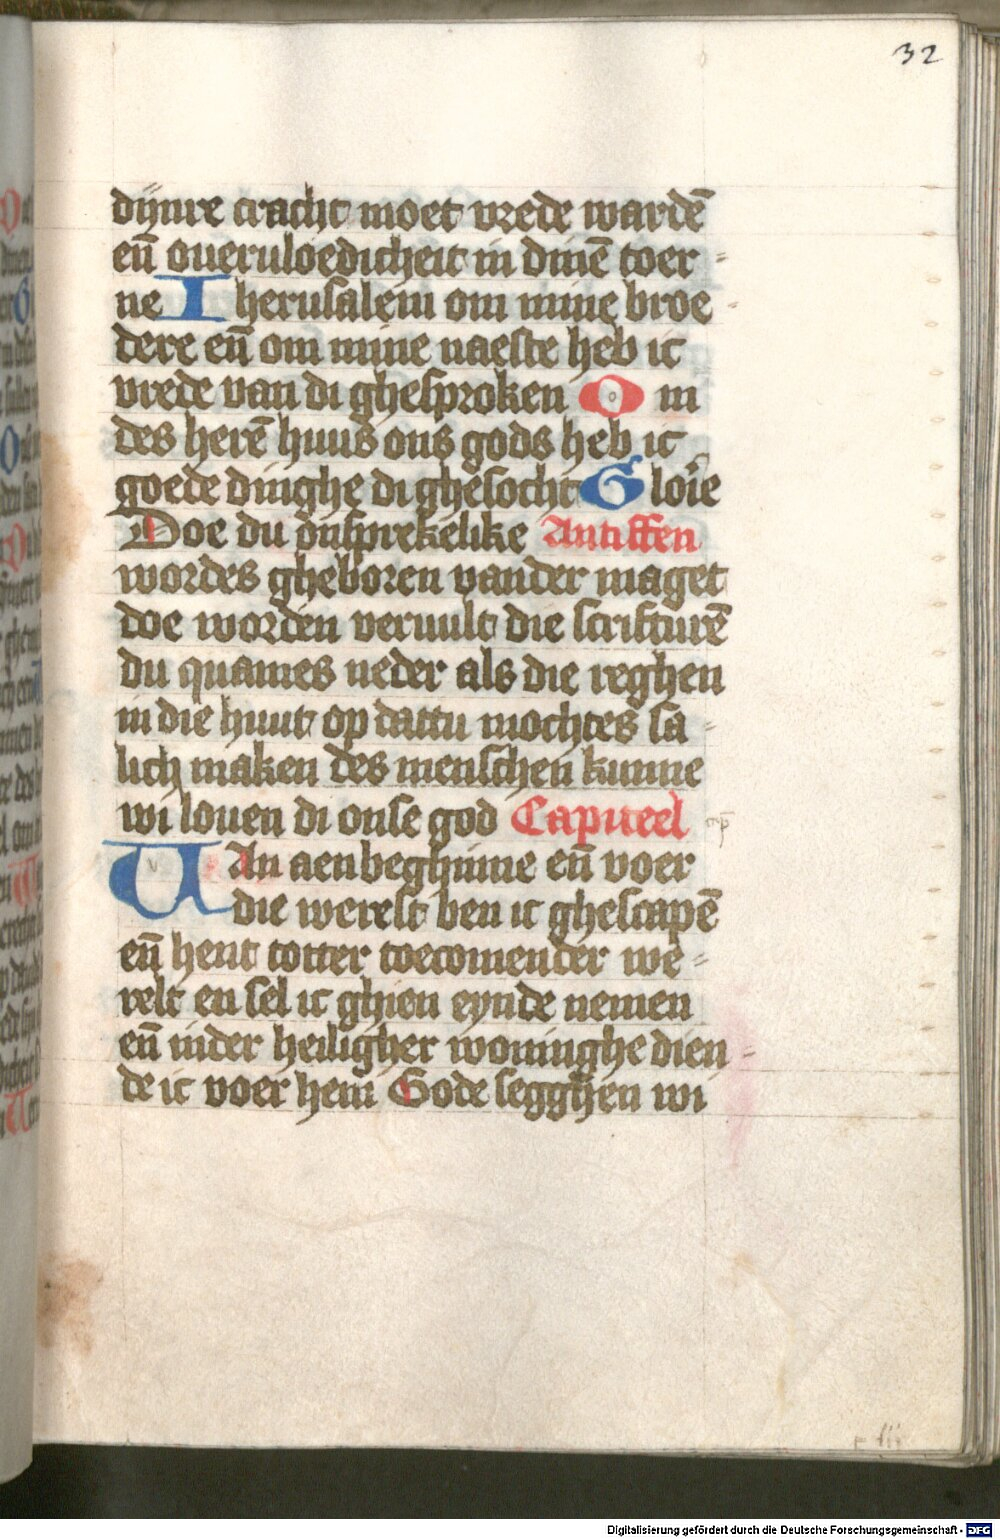 32
dijnre cracht moet vrede wardē
eñ oueruloedicheit in dinē toer-
ne Iherusalem om mine broe
dere eñ om mine naeste heb ic
vrede van di ghesproken O m
des herē huus ons gods heb ic
goede dinghe di ghesocht Glorie
Doe du onsprekelike Antiffen
wordes gheboren vander maget
doe worden veruult die scrifturē
du quames neder als die reghen
in die huut op dattu mochtes sa-
lich maken des menschen kunne
wi louen di onse god Capiteel
VAn aenbeghinne eñ voer
die werelt ben ic ghescapē
eñ hent totter toecomender we-
relt en sel ic ghien eynde nemen
eñ inder heiligher woninghe dien-
de ic voer hem Gode segghen wi
Digitalisierung gefördert durch die Deutsche Forschungsgemeinschaft - DFG